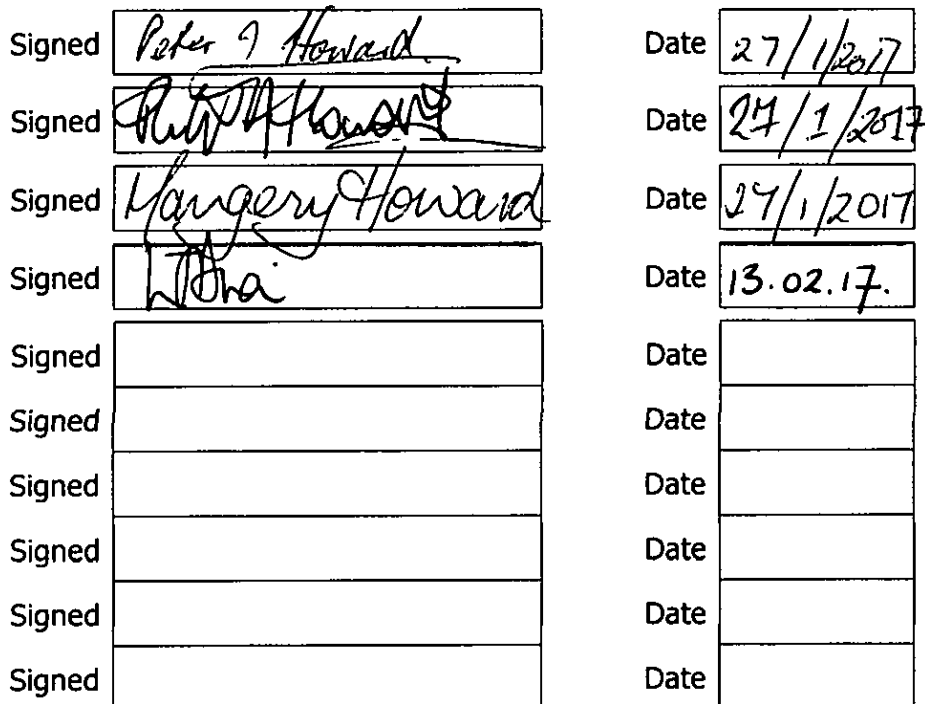 Signed Peter J Howard Date 27/1/2017
Signed Howard Date 27/1/2017
Signed Margery Howard Date 27/1/2017
Signed Date 13.02.17.
Signed Date
Signed Date
Signed Date
Signed Date
Signed Date
Signed Date